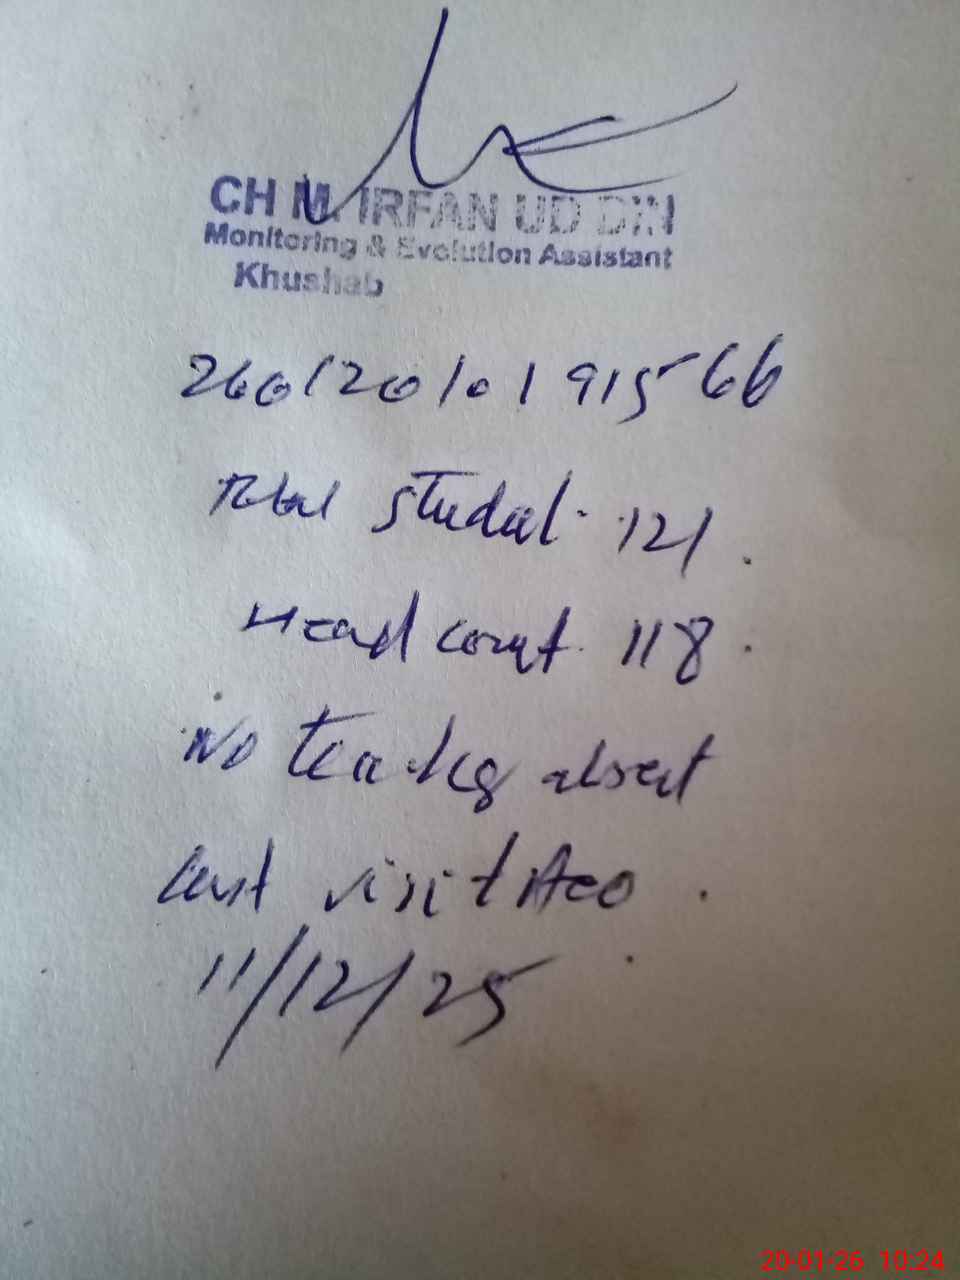 CH M. IRFAN UD DIN
Monitoring & Evolution Assistant
Khushab
Total Student. 121.
Head count. 118.
No teacher absent
Last visit AEO.
11/12/25
20-01-26 10:24